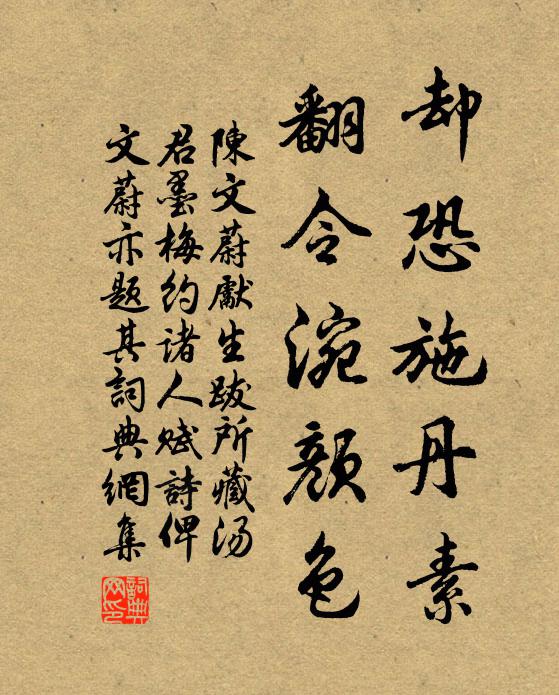 却恐施丹素
翻令涴顔色
陳文蔚獻生跋所藏湯
君墨梅約诸人赋詩俾
文蔚亦题其詞典網集
詞典网印